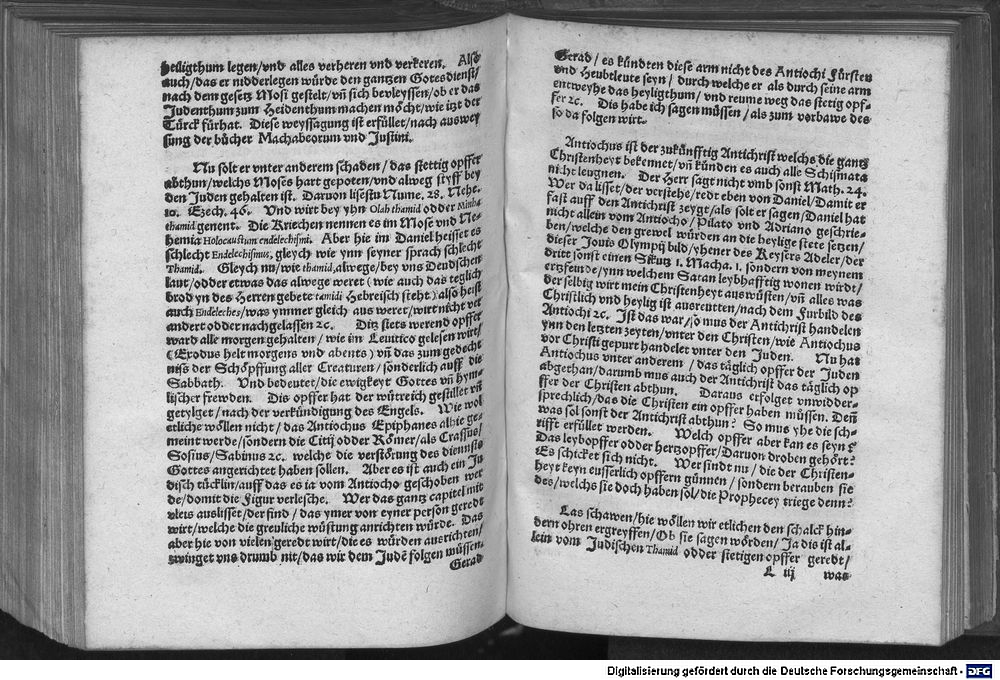 heiligthum legen/vnd alles verheren vnd verkeren. Also
auch/das er nidderlegen würde den gantzen Gotesdienst/
nach dem gesetz Mosi gestelt/vñ sich bevleyssen/ob er das
Judenthum zum Heidenthum machen möcht/wie itzt der
Türck fürhat. Diese weyssagung ist erfüllet/nach auswey
sung der bücher Machabeorum vnd Justini.
Nu solt er vnter anderem schaden/das stettig opffer
abthun/welchs Moses hart gepoten/vnd alweg styff bey
den Juden gehalten ist. Daruon lisestu Nume. 28. Nehe.
10. Ezech. 46. Vnd wirt bey yhn Olah thamid odder Minha
thamid genent. Die Kriechen nennen es im Mose vnd Ne-
hemia Holocaustum endelechismi. Aber hie im Daniel heisset es
schlecht Endelechismus, gleych wie ynn seyner sprach schlecht
Thamid. Gleych nu/wie thamid, alwege/bey vns Deudschen
laut/odder etwas das alwege weret (wie auch das teglich
brod yn des Herren gebete tamidi Hebreisch steht) also heist
auch Endeleches/was ymmer gleich aus weret/wirt nicht ver
andert odder nachgelassen ꝛc. Ditz stets werend opffer
ward alle morgen gehalten/wie im Leuitico gelesen wirt/
(Exodus helt morgens vnd abents) vñ das zum gedecht
niss der Schöpffung aller Creaturen/sonderlich auff die
Sabbath. Vnd bedeutet/die ewigkeyt Gottes vñ hym-
lischer frewden. Dis opffer hat der wütreich gestillet vñ
getylget/nach der verkündigung des Engels. Wie wol
etliche wöllen nicht/das Antiochus Epiphanes alhie ge-
meint werde/sondern die Citij odder Römer/als Crassus/
Sosius/Sabinus ꝛc. welche die verstörung des diensts
Gottes angerichtet haben sollen. Aber es ist auch ein Ju
disch tücklin/auff das es ia vom Antiocho geschoben wer
de/domit die Figur verlesche. Wer das gantz capitel mit
vleis auslisset/der find/das ymer von eyner person geredt
wirt/welche die greuliche wüstung anrichten würde. Das
aber hie von vielen geredt wirt/die es würden anrichten/
zwinget vns drumb nit/das wir dem Judẽ folgen müssen.
Gerad
Gerad/es kündten diese arm nicht des Antiochi Fürsten
vnd Heubtleute seyn/durch welche er als durch seine arm
entweyhe das heyligthum/vnd reume weg das stetig opf-
fer ꝛc. Dis habe ich sagen müssen/als zum vorbawe des
so da folgen wirt.
Antiochus ist der zukünfftig Antichrist welchs die gantz
Christenheyt bekennet/vñ künden es auch alle Schismata
nicht leugnen. Der Herr sagt nicht vmb sonst Math. 24.
Wer da lisset/der verstehe/redt eben von Daniel/Damit er
fast auff den Antichrist zeygt/als solt er sagen/Daniel hat
nicht allein vom Antiocho/Pilato vnd Adriano geschrie-
ben/welche den grewel würden an die heylige stete setzen/
dieser Jouis Olympij bild/yhener des Keysers Adeler/der
dritt sonst einen Skutz 1. Macha. 1. sondern von meynem
ertzfeinde/ynn welchem Satan leybhafftig wonen wirdt/
der selbig wirt mein Christenheyt auswüsten/vñ alles was
Christlich vnd heylig ist ausreutten/nach dem Furbild des
Antiochi ꝛc. Ist das war/so mus der Antichrist handelen
ynn den letzten zeyten/vnter den Christen/wie Antiochus
vor Christi gepurt handelet vnter den Juden. Nu hat
Antiochus vnter anderem/das täglich opffer der Juden
abgethan/darumb mus auch der Antichrist das täglich op
ffer der Christen abthun. Daraus erfolget vnwidder-
sprechlich/das die Christen ein opffer haben müssen. Deñ
was sol sonst der Antichrist abthun? So mus yhe die sch-
rifft erfüllet werden. Welch opffer aber kan es seyn?
Das leybopffer odder hertzopffer/Daruon droben gehört?
Es schicket sich nicht. Wer sindt nu/die der Christen-
heyt keyn eusserlich opffern günnen/sondern berauben sie
des/welchs sie doch haben sol/die Prophecey triege denn?
Las schawen/hie wöllen wir etlichen den schalck hin-
dern ohren ergreyffen/Ob sie sagen wörden/Ja dis ist al-
lein vom Judischen Thamid odder stetigen opffer geredt/
L iij was
Digitalisierung gefördert durch die Deutsche Forschungsgemeinschaft - DFG